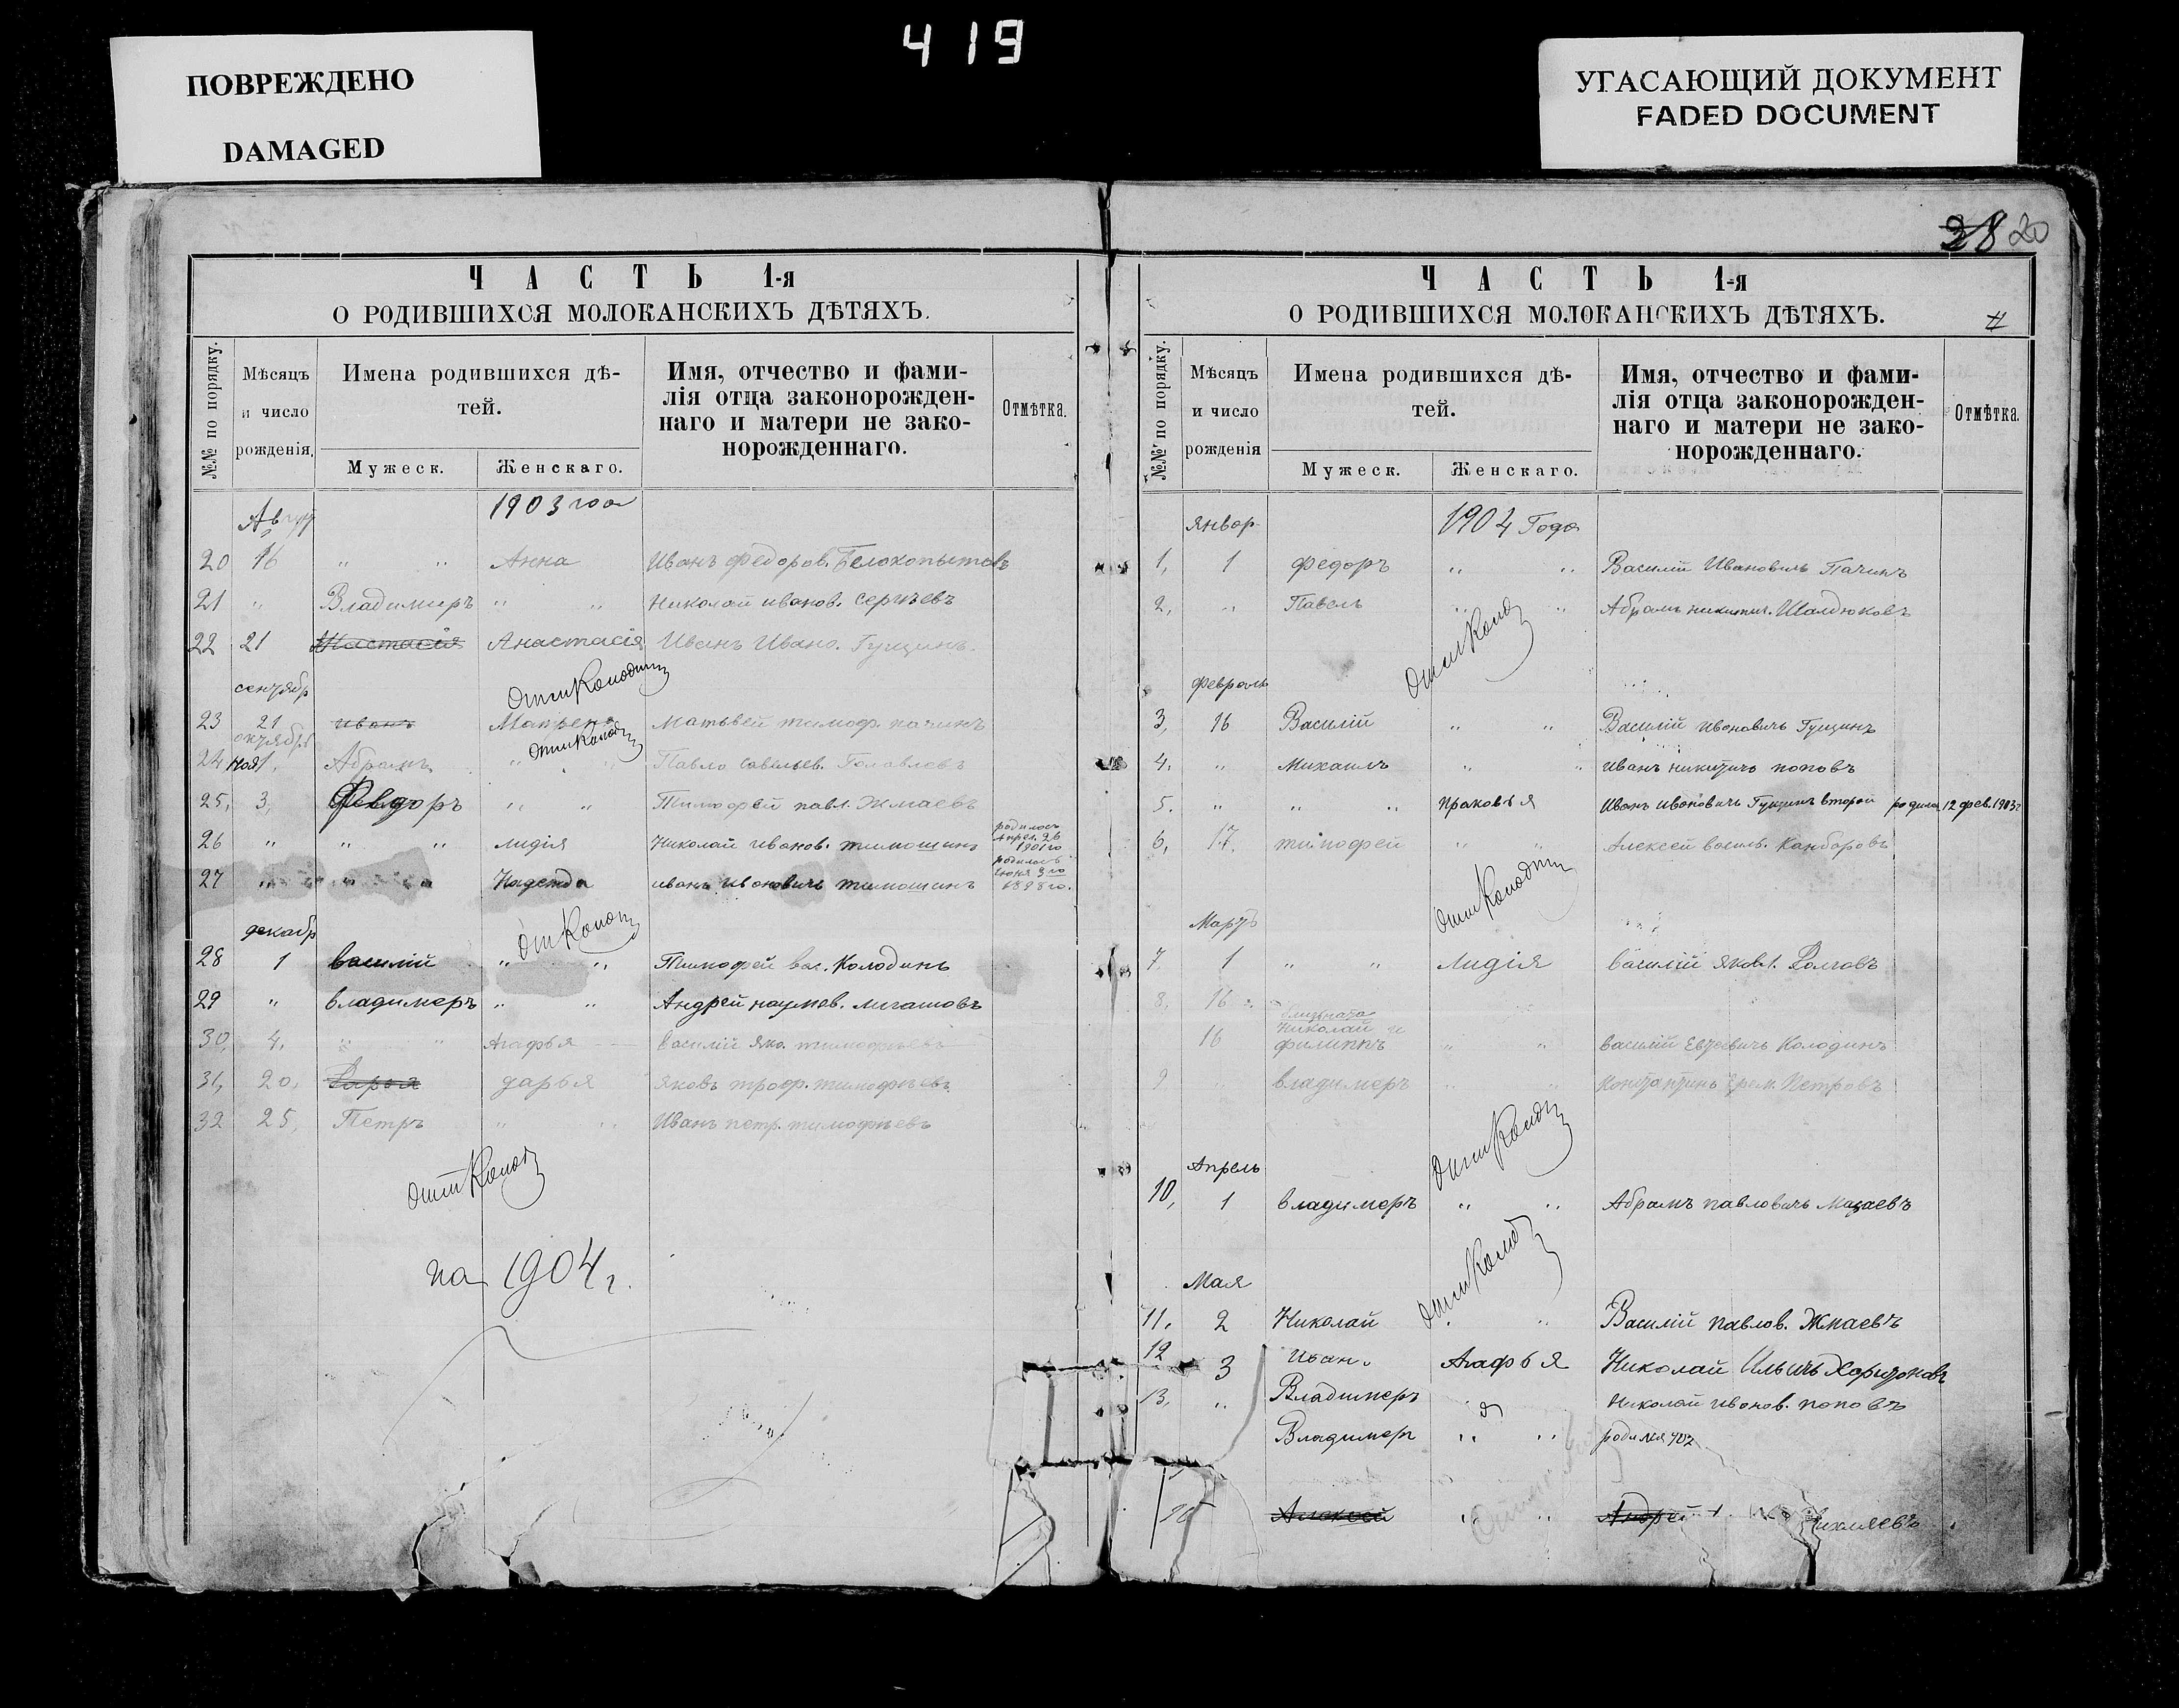 419
ПОВРЕЖДЕНО
DAMAGED
УГАСАЮЩИЙ ДОКУМЕНТ
FADED DOCUMENT
ЧАСТЬ 1-я
О РОДИВШИХСЯ МОЛОКАНСКИХЪ ДѢТЯХЪ.
№№ по порядку.
Мѣсяцъ и число рожденія,
Имена родившихся дѣ-
тей.
Мужеск. Женскаго.
Имя, отчество и фами-
лія отца законорожден-
наго и матери не зако-
норожденнаго.
Отмѣтка.
1903 года
Август
20 16 " " Анна Иванъ Федоров. Белокопытовъ
21 " Владимиръ " " Николай иванов. Сергѣевъ
22 21 Анастасія Иванъ Ивано. Гущинъ.
сентябр
23 21 иванъ Матьвей тимоф. пачинъ
октябрь
24 ноя 1. Абрамъ " " Павло
25, 3, Федоръ " " Тимофей павл. Жмаевъ
26 " " " лидія Николай иванов. тимошинъ родилась Апрел. 26 1901 го
27 " " " Надежда иванъ ивановичь тимошинъ родилась июня 3 го 1898 го.
декабр
28 1 василій " " Тимофей вас. Колодинъ
29 " владимеръ " " Андрей наумов.
30, 4, " " Агафья василій яко. тимофѣевъ
31, 20, Дарья дарья яковъ троф. тимофѣевъ
32 25, Петръ " " Иванъ петр. тимофѣевъ
на 1904 г.
28 20
ЧАСТЬ 1-я
О РОДИВШИХСЯ МОЛОКАНСКИХЪ ДѢТЯХЪ.
№№ по порядку.
Мѣсяцъ и число рожденія
Имена родившихся дѣ-
тей.
Мужеск. Женскаго.
Имя, отчество и фами-
лія отца законорожден-
наго и матери не зако-
норожденнаго.
Отмѣтка.
1904 Года
январ
1, 1 Федоръ " " Василий Ивановичь Пачинъ
2, " Павелъ " " Абрамъ никитич. Шалдюковъ
февраль
3, 16 Василій " " Василій ивановичь Гущинъ
4. " Михаилъ " " иванъ никитичь поповъ
5. " " " праковья Иванъ ивановичь Гущинъ второй родила 12 фев. 1903 г
6, 17. тимофей " " Алексей василь. Камбаровъ
Мартъ
7 1 " " Лидія василій яковл. Долговъ
8. 16
близната
16 Николай и филиппъ " " василій Евтеевичь Колодинъ
9 владимеръ " " Константинъ Ерем. Петровъ
Апрель
10, 1 владимеръ " " Абрамъ павловичь Мазаевъ
Мая
11. 2 Николай " " Василій павлов. Жмаевъ
12 3 Иван. Агафья Николай Ильичь Харитоновъ
13, " Владимеръ Николай иванов. поповъ
Владимер " "
Алексей " " Андрей